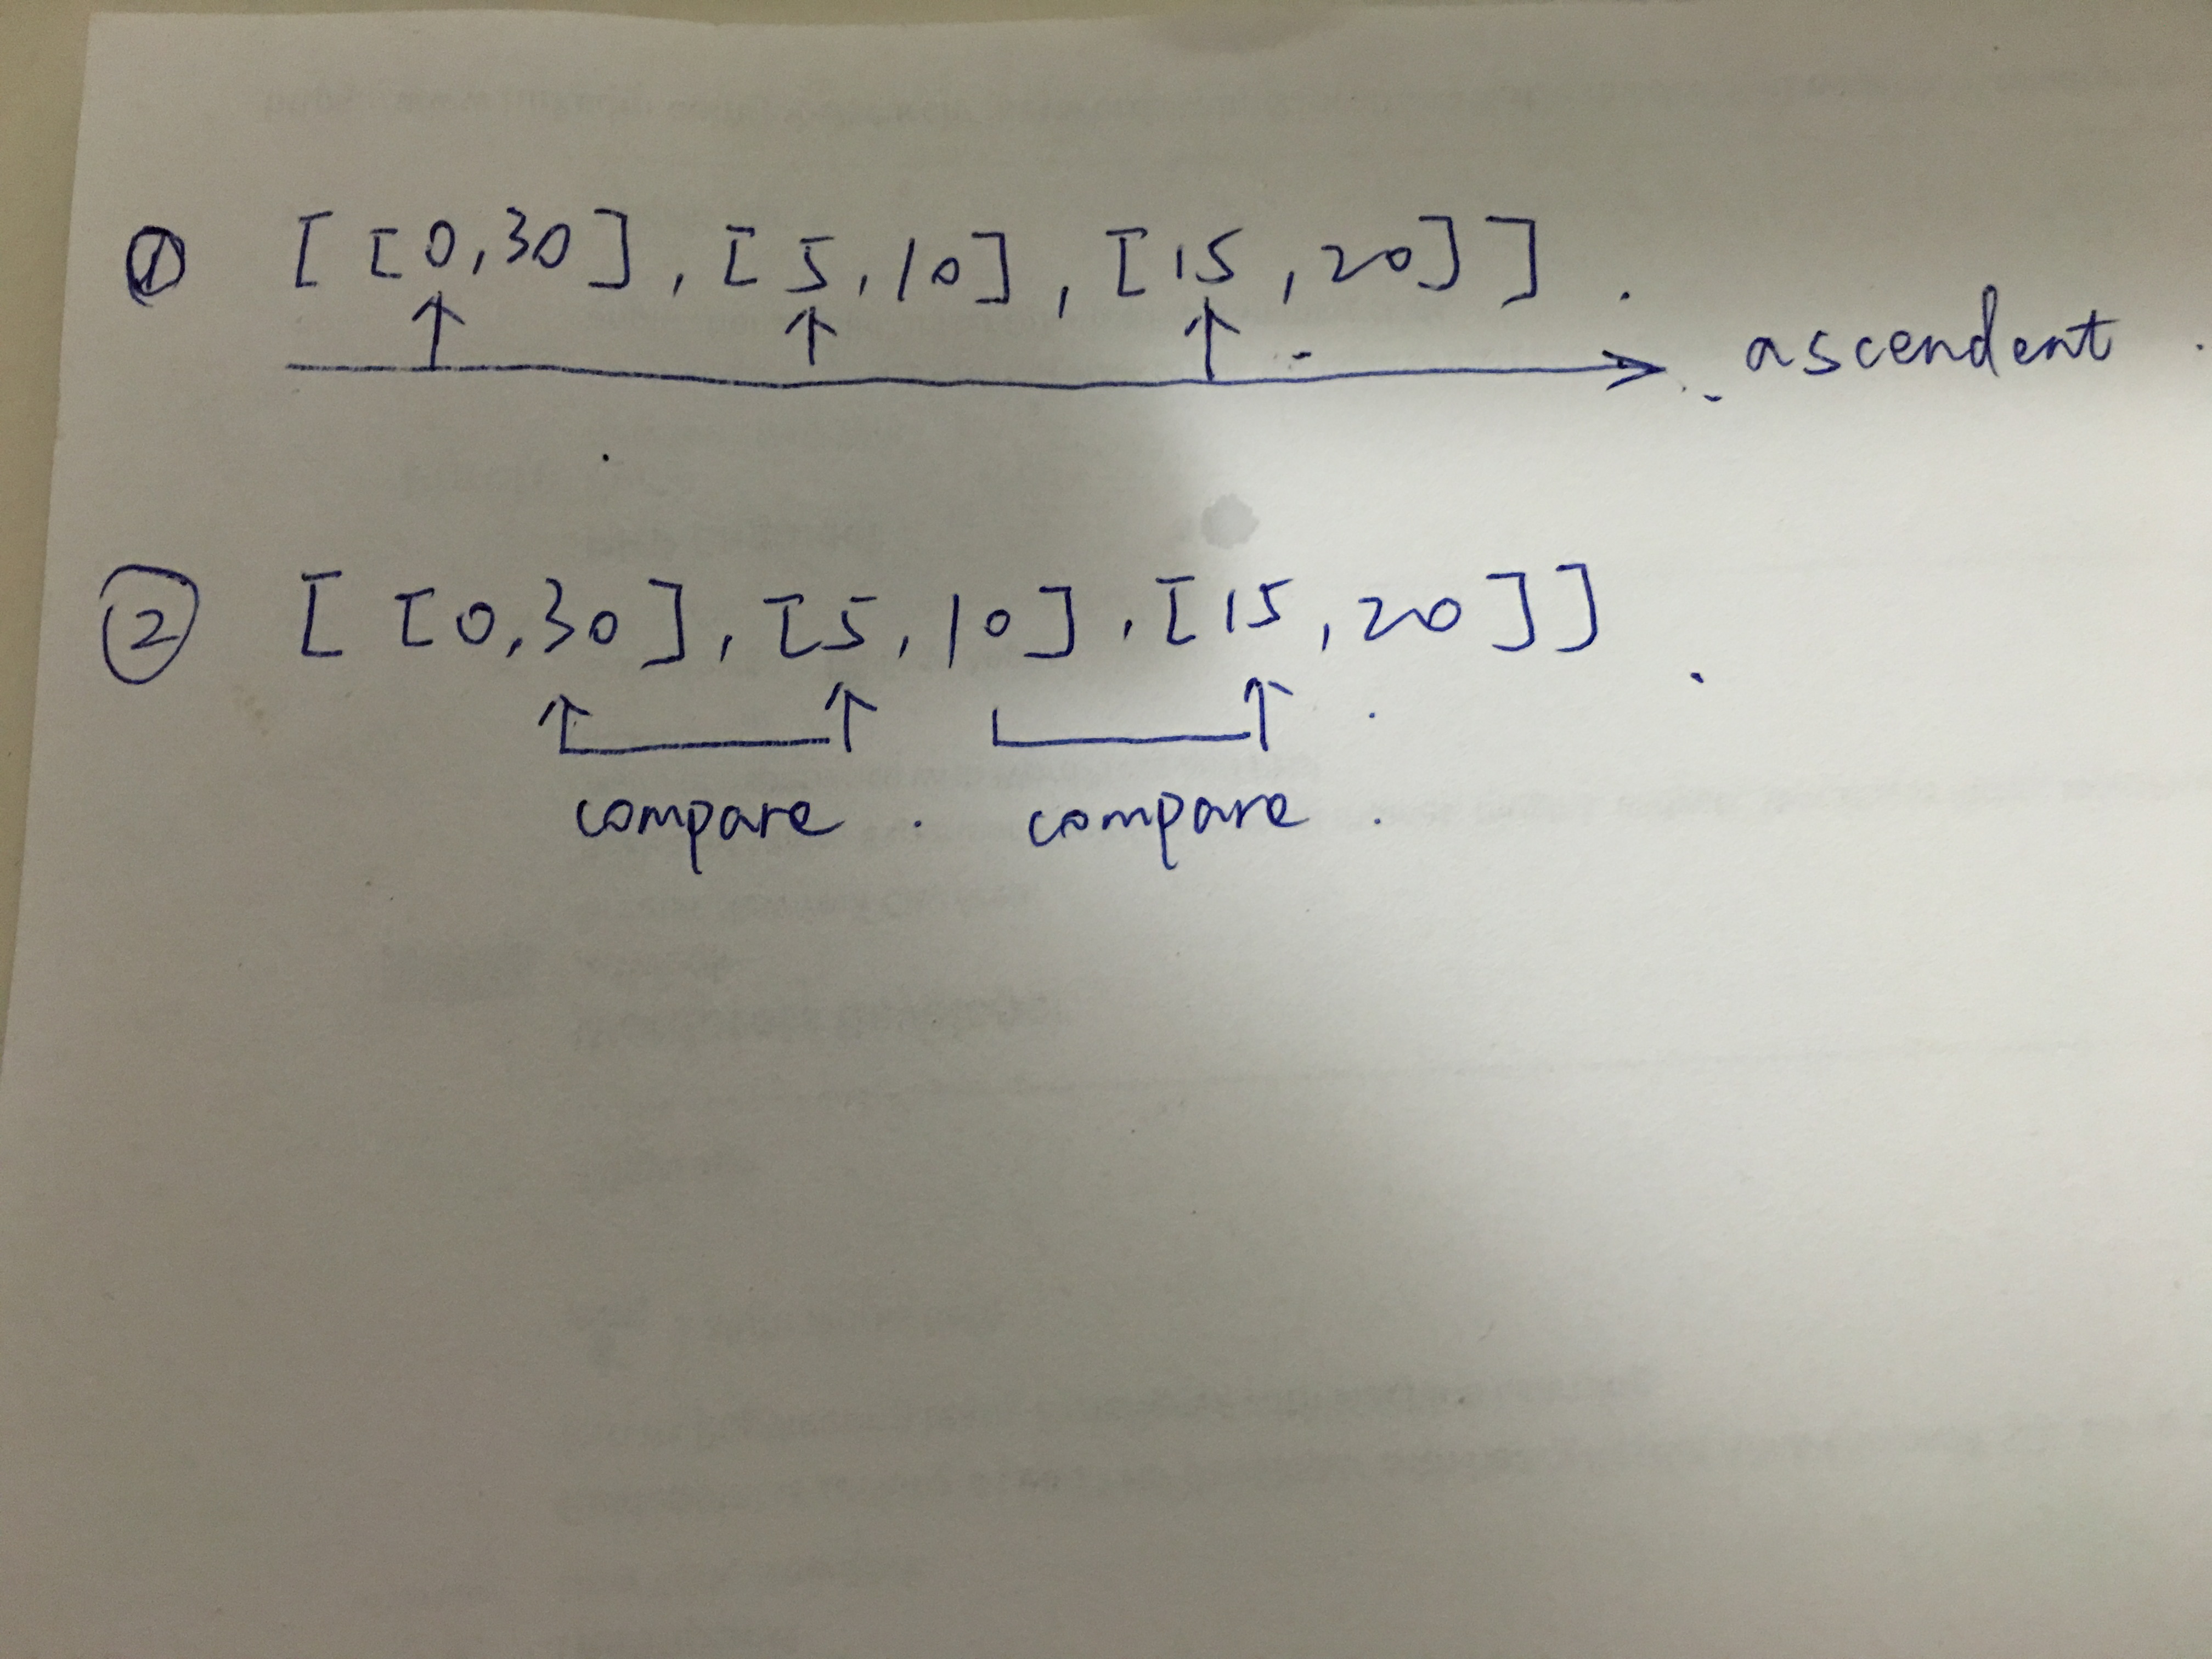 ① [[0,30], [5,10], [15,20]]
ascendent
② [[0,30], [5,10], [15,20]]
compare compare